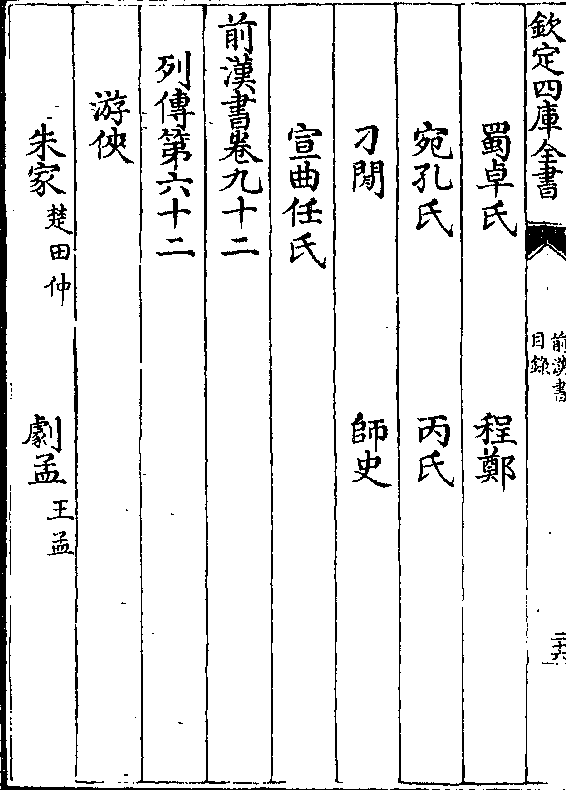 欽定四庫全書
前漢書
目錄
二十六
蜀卓氏 程鄭
宛孔氏 丙氏
刁閒 師史
宣曲任氏
前漢書卷九十二
列傳第六十二
游俠
朱家 楚田仲 劇孟 王孟